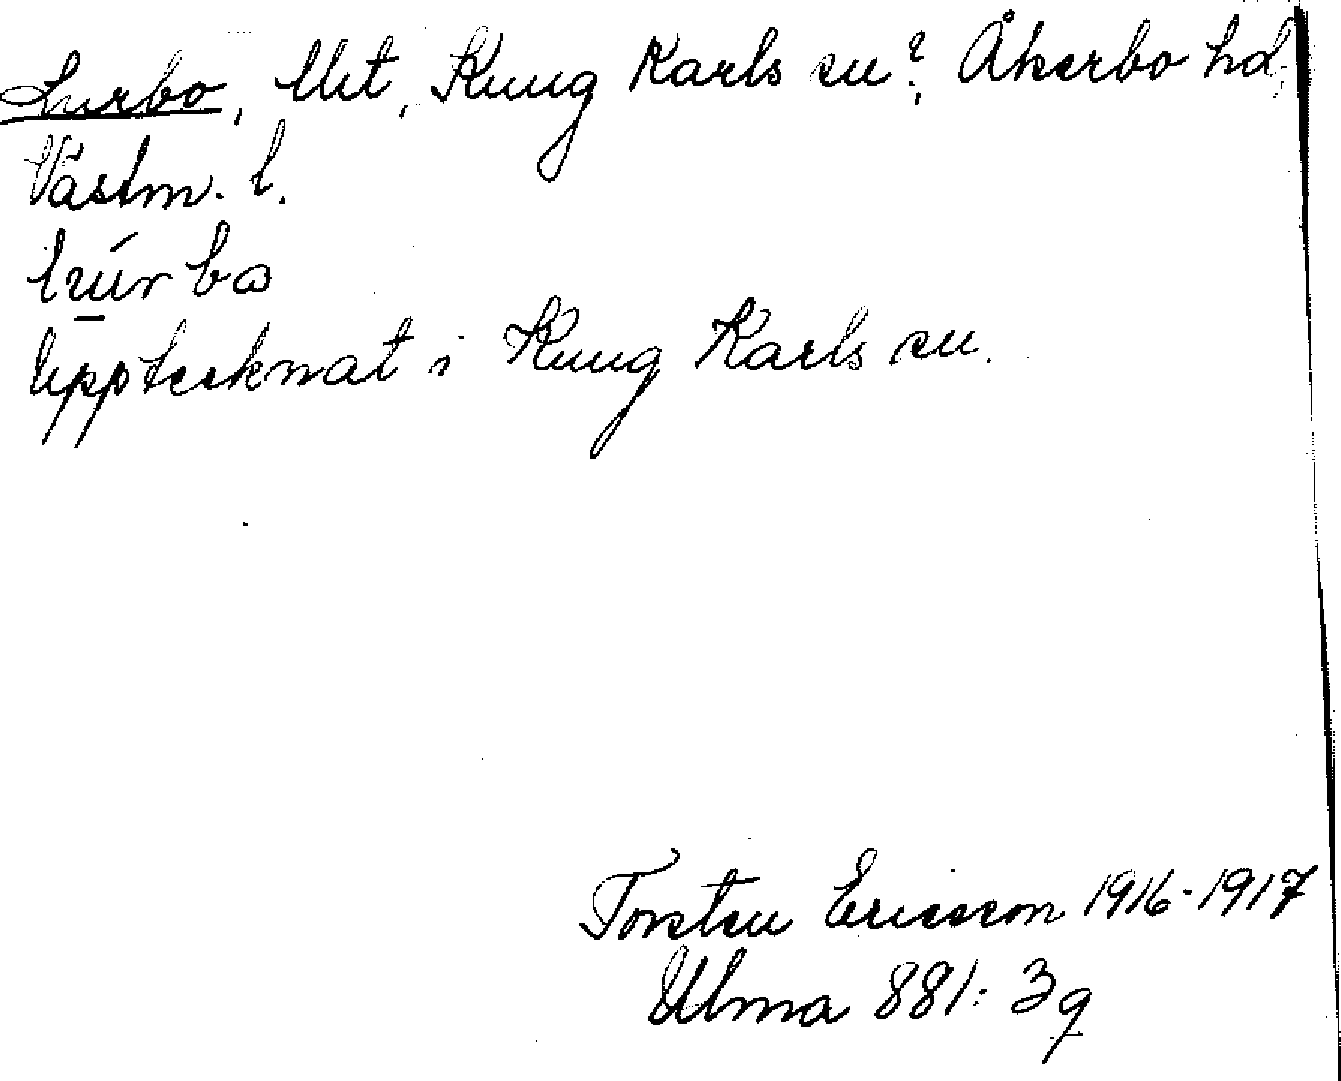 Lurbo, Utit, Kung Karls sn?, Åkerbo hd,
Västm. l.
Upptecknat i Kung Karls sn.
Torsten Ericsson 1916-1917
Ulma 881: 3q